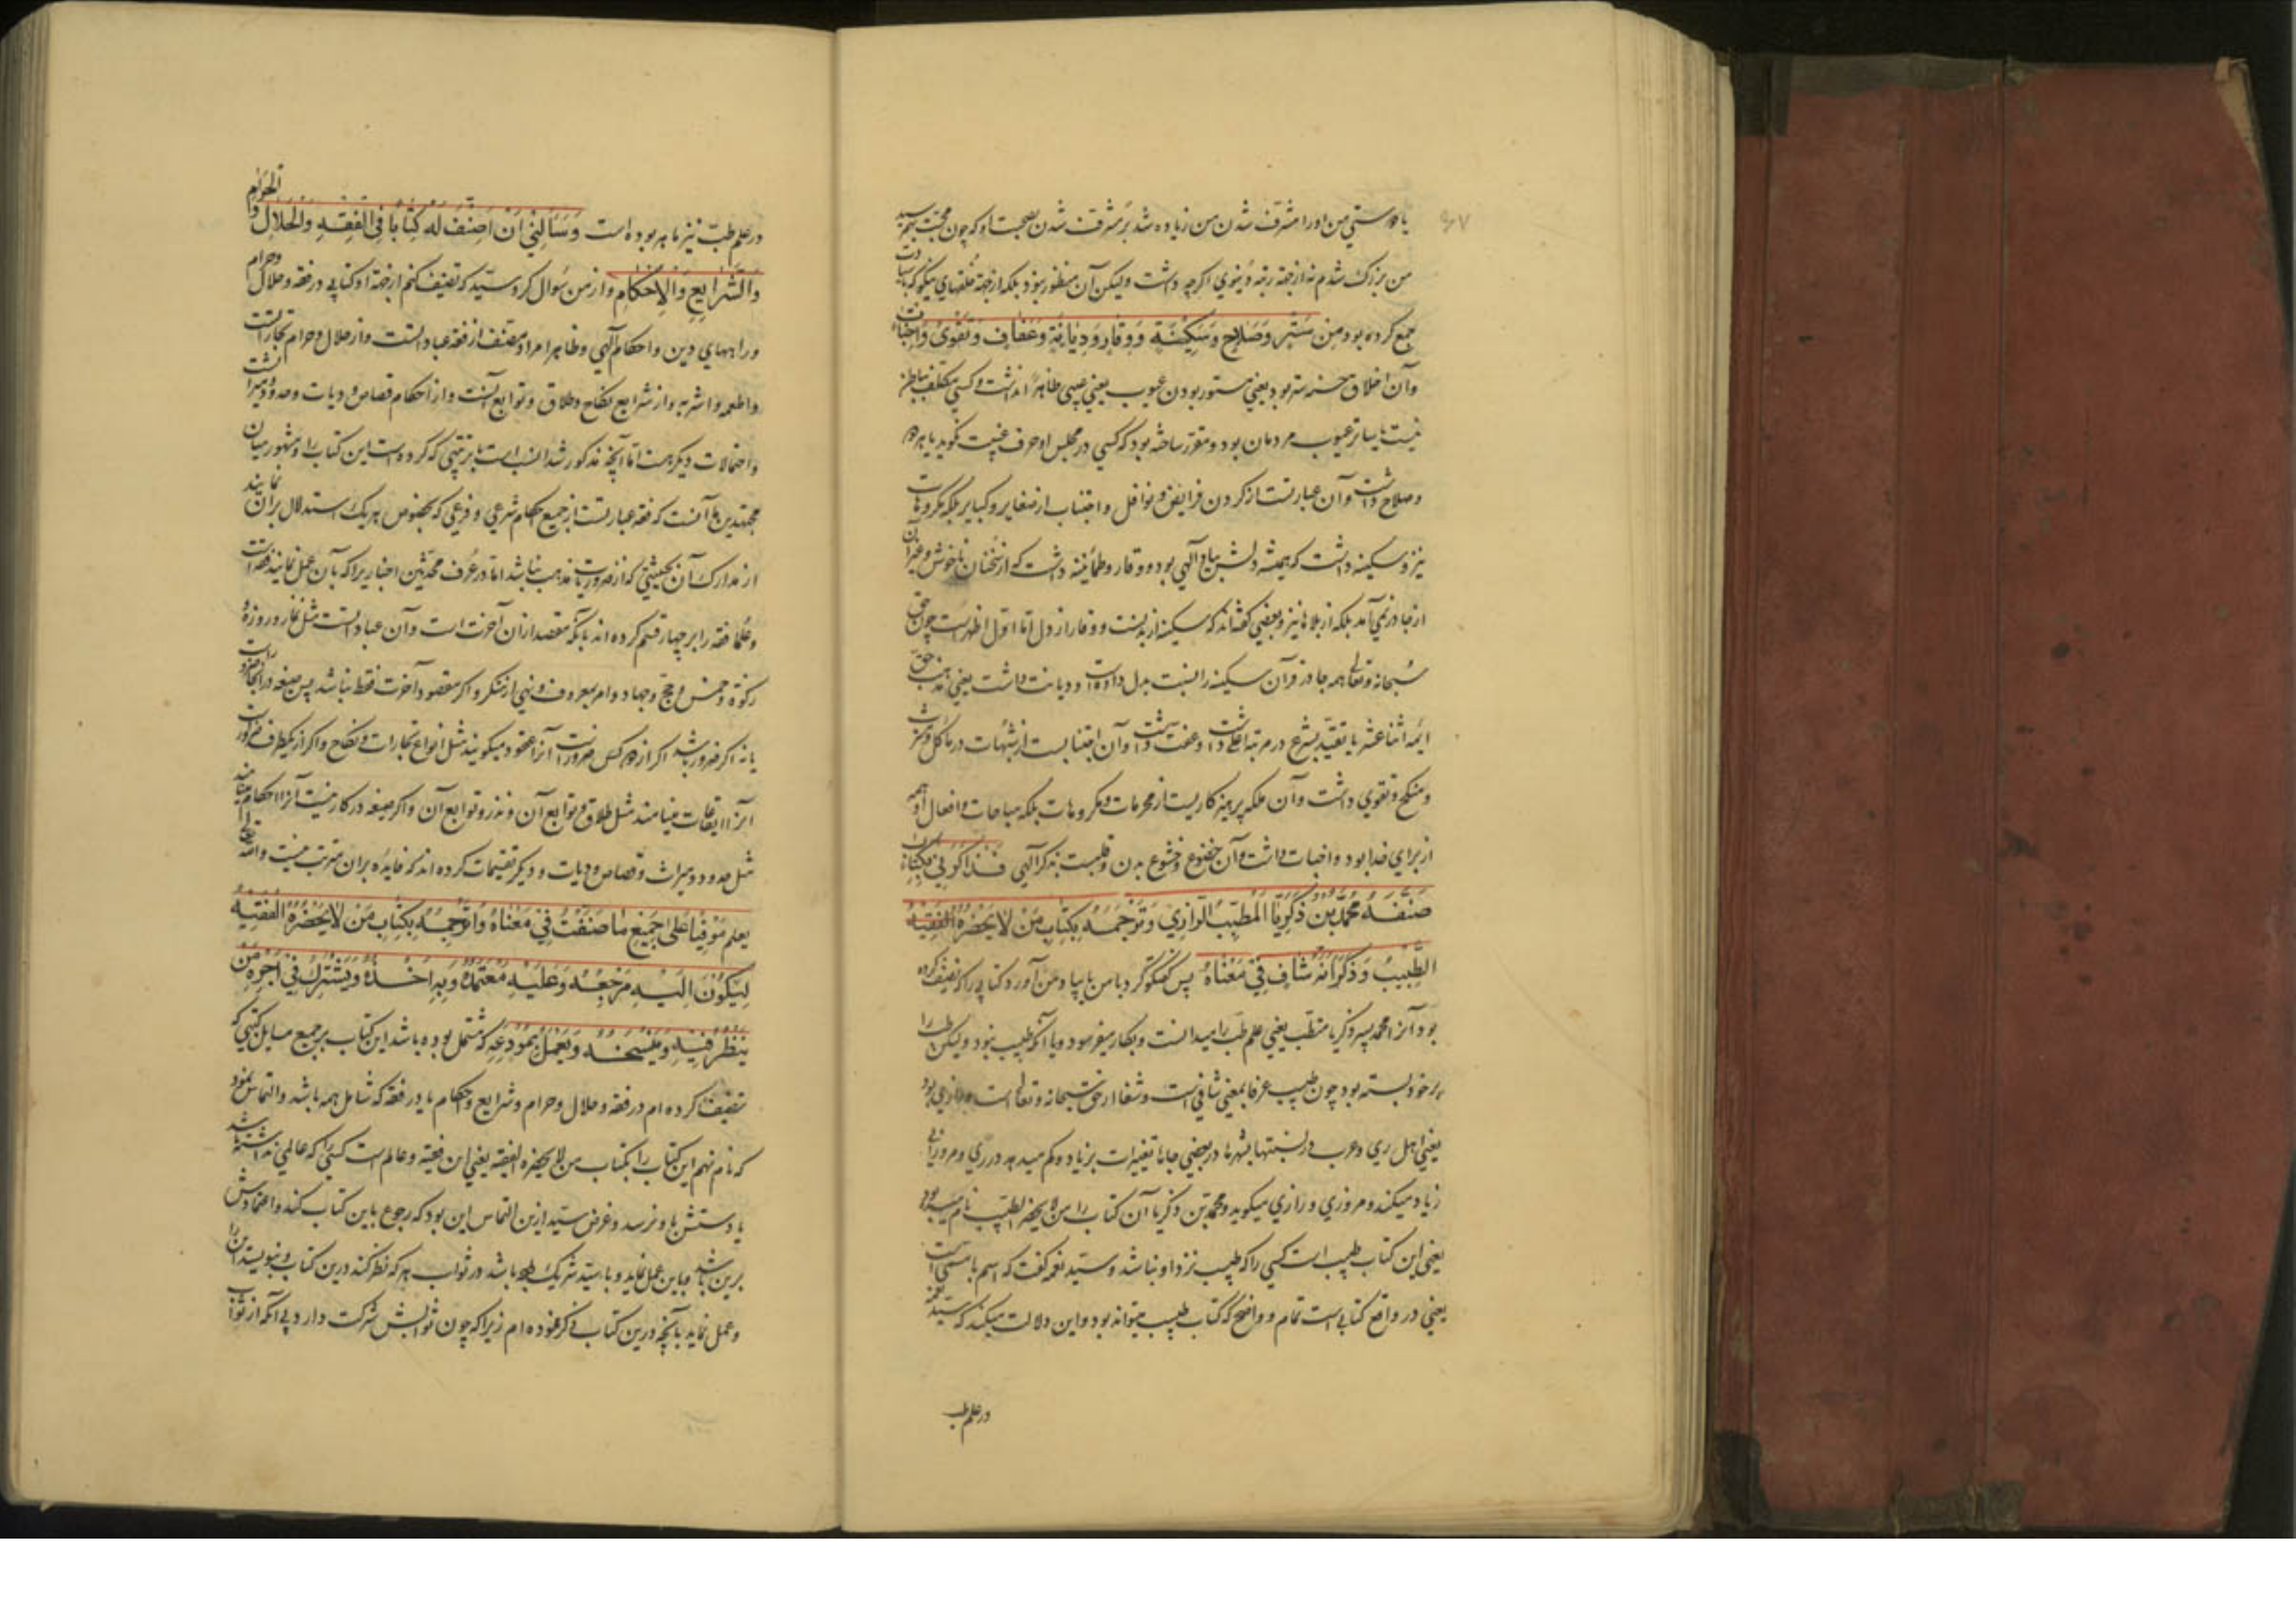 یا دوستی من او را مشرف شدن من زیاده شد بر مشرف شدن بصحبت او که چون محبت بهم رسید
من بزرک شدم نه از جهة رتبه دنیوی اکرچه داشت ولیکن آن منظور نبود بلکه از جهة خلقهای نیکو که با سیادت
جمع کرده بود مِن سَتْرٍ وَصَلاحٍ وَسَکینَةٍ وَوَقارٍ وَدِیانَةٍ وَعَفافٍ وَتَقْویٰ وَاِخْباتٍ
وآن اخلاق حسنه ستر بود یعنی مستور بودن عیوب یعنی عیبی ظاهراً نداشت وکسی مکلف بباطن
نیست یا ساتر عیوب مردمان بود ومقرر ساخته بود که کسی در مجلس او حرف غیبت نکوید یا هر دو
وصلاح داشت وآن عبارتست از کردن فرایض ونوافل واجتناب از صغایر وکبایر بلکه مکروهات
نیز وسکینه داشت که همیشه دلش بیاد آلهی بود ووقار وطمأنینه داشت که از سخنان ناخوش وغیر آن
از جا در نمی آمد بلکه از بلاها نیز وبعضی کفته اند که سکینه از بدنست ووقار از دل اما اول اظهر است چون حق
سبحانه وتعالی همه جا در قرآن سکینه را نسبت بدل داده است ودیانت داشت یعنی مذهب حق
ائمه اثنا عشر با تقید بشرع در مرتبه اعلی داشت وعفت داشت وآن اجتنابست از شبهات در مأکل ومشرب
ومنکح وتقوی داشت وآن ملکه پرهیزکاریست از محرمات ومکروهات بلکه مباحات وافعال او همه
از برای خدا بود واخبات داشت وآن خضوع وخشوع بدن وقلبست بذکر آلهی فَذاکَرَنی بِکِتابٍ
صَنَّفَهُ مُحَمَّدُ بْنُ زَکَرِیَّا الْمُطَبِّبُ الرّازِی وَتَرْجَمَهُ بِکِتابِ مَنْ لایَحْضُرُهُ الْفَقیهُ
الطَّبیبُ وَذَکَرَ اَنَّهُ شافٍ فی مَعْناهُ پس کفتکو کرد با من یا بیاد من آورد کتابی را که تصنیف کرده
بود آنرا محمد پسر زکریا متطبب یعنی علم طب را میدانست وبکار میفرمود ویا آنکه طبیب نبود ولیکن طب را
بر خود بسته بود چون طبیب عرفا بمعنی شافی است وشفا از حق سبحانه وتعالی است ورازی بود
یعنی از اهل ری وعرب در نسبتها بشهرها در بعضی جاها تغییرات بزیاد وکم میدهد در ری ومرو زای
زیاد میکنند ومروزی ورازی میکویند ومحمد بن زکریا آن کتاب را من لایحضره الطبیب نام نهاده بود
یعنی این کتاب طبیب است کسی را که طبیب نزد او نباشد وسید نعمه کفت که اسم با مسمی است
یعنی در واقع کتابی است تمام وواضح که کتاب طبیب میتواند بود واین دلالت میکند که سید نعمه
در علم طب
در علم طبّ نیز ماهر بوده است وَسَأَلَنی اَنْ اُصَنِّفَ لَهُ کِتاباً فِی الْفِقْهِ وَالْحَلالِ وَالْحَرامِ
وَالشَّرایِعِ وَالْاَحْکامِ واز من سؤال کرد سید که تصنیف کنم از جهة او کتابی در فقه وحلال وحرام
وراههای دین واحکام آلهی وظاهرا مراد مصنف از فقه عباداتست واز حلال وحرام تجاراتست
واطعمه واشربه واز شرایع نکاح وطلاق وتوابع آنست واز احکام قصاص ودیات وحدود ومیراثست
واحتمالات دیکر هست اما آنچه مذکور شد انسب است با ترتیبی که کرده است این کتاب را ومشهور میان
مجتهدین ما آنست که فقه عبارتست از جمیع احکام شرعی وفرعی که بخصوص هر یک استدلال بر آن نمایند
از مدارک آن بحیثیتی که از ضروریات مذهب نباشد اما در عرف محدثین اخباریرا که بآن عمل نمایند فقه است
وعلما فقه را بر چهار قسم کرده اند بآنکه مقصد از آن آخرت است وآن عباداتست مثل نماز وروزه و
زکوة وخمس وحج وجهاد وامر بمعروف ونهی از منکر واکر مقصود آخرت فقط نباشد پس صیغه در آنجا ضرور است
یا نه اکر ضرور باشد اکر از دو کس ضرور است آنرا عقود میکویند مثل انواع تجارات ونکاح واکر از یکطرف ضرور است
آنرا ایقاعات مینامند مثل طلاق وتوابع آن ونذر وتوابع آن واکر صیغه در کار نیست آنرا احکام مینامند
مثل حدود ومیراث وقصاص ودیات ودیکر تقسیمات کرده اند که فایده بر آن مترتب نیست والله تعالی
یعلم مُوفِیاً عَلیٰ جَمیعِ ما صَنَّفْتُ فی مَعْناهُ وَاُتَرْجِمَهُ بِکِتابِ مَنْ لایَحْضُرُهُ الْفَقیهُ
لِیَکُونَ اِلَیْهِ مَرْجِعُهُ وَعَلَیْهِ مُعْتَمَدُهُ وَبِهِ اَخْذُهُ وَیَشْتَرِکَ فی اَجْرِهِ مَنْ
یَنْظُرُ فیهِ وَیَنْسَخُهُ وَیَعْمَلُ بِمُودَعِهِ که مشتمل بوده باشد این کتاب بر جمیع مسایل کتبی که
تصنیف کرده ام در فقه وحلال وحرام وشرایع واحکام یا در فقه که شامل همه باشد والتماس نمود
که نام نهم این کتاب را بکتاب من لایحضره الفقیه یعنی این فقیه وعالم است کسی را که عالمی نداشته باشد
یا دستش باو نرسد وغرض سید ازین التماس این بود که رجوع باین کتاب کند واعتمادش
برین باشد وباین عمل نماید وبا سید شریک باشد در ثواب هر که نظر کند درین کتاب وبنویسد این را
وعمل نماید بآنچه درین کتاب ذکر نموده ام زیرا که چون ثوابش شرکت دارد بی آنکه از ثواب